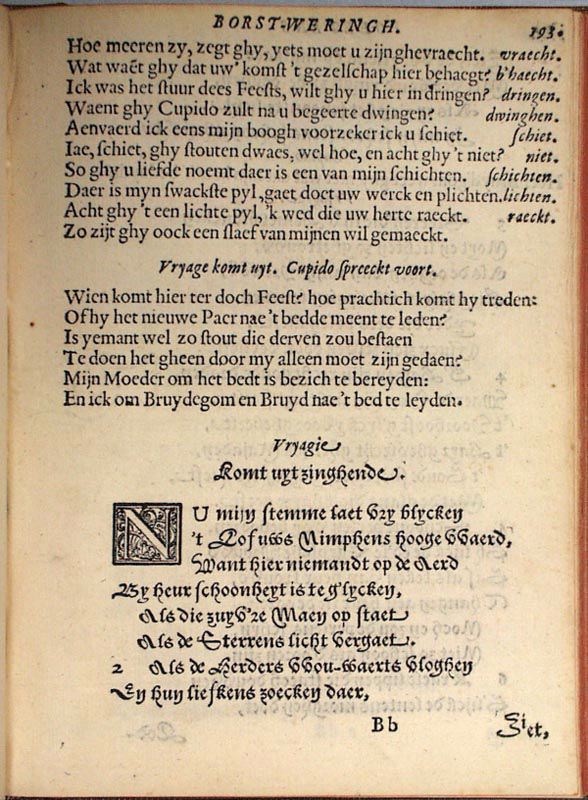 BORST-WERINGH. 193.
Hoe meeren zy, zegt ghy, yets moet u zijn ghevraecht. vraecht.
Wat waēt ghy dat uw' komst 't gezelschap hier behaegt? b'haecht.
Ick was het stuur dees Feests, wilt ghy u hier in dringen? dringen.
Waent ghy Cupido zult na u begeerte dwingen? dwinghen.
Aenvaerd ick eens mijn boogh voorzeker ick u schiet. schiet.
Iae, schiet, ghy stouten dwaes, wel hoe, en acht ghy 't niet? niet.
So ghy u liefde noemt daer is een van mijn schichten. schichten.
Daer is myn swackste pyl, gaet doet uw werck en plichten. lichten.
Acht ghy 't een lichte pyl, 'k wed die uw herte raeckt. raeckt.
Zo zijt ghy oock een slaef van mijnen wil gemaeckt.
Vryage komt uyt. Cupido spreeckt voort.
Wien komt hier ter doch Feest? hoe prachtich komt hy treden:
Of hy het nieuwe Paer nae 't bedde meent te leden?
Is yemant wel zo stout die derven zou bestaen
Te doen het gheen door my alleen moet zijn gedaen?
Mijn Moeder om het bedt is bezich te bereyden:
En ick om Bruydegom en Bruyd nae 't bed te leyden.
Vryagie
Komt uyt zinghende.
NU mijn stemme laet vry blycken
't Lof uws Nimphens hooge waerd,
Want hier niemandt op de Aerd
By heur schoonheyt is te g'lycken,
Als die zuyv're Maen op staet
Als de Sterrens licht vergaet.
2 Als de Herders wou-waerts vloghen
En hun liefkens zoecken daer,
Bb Ziet,